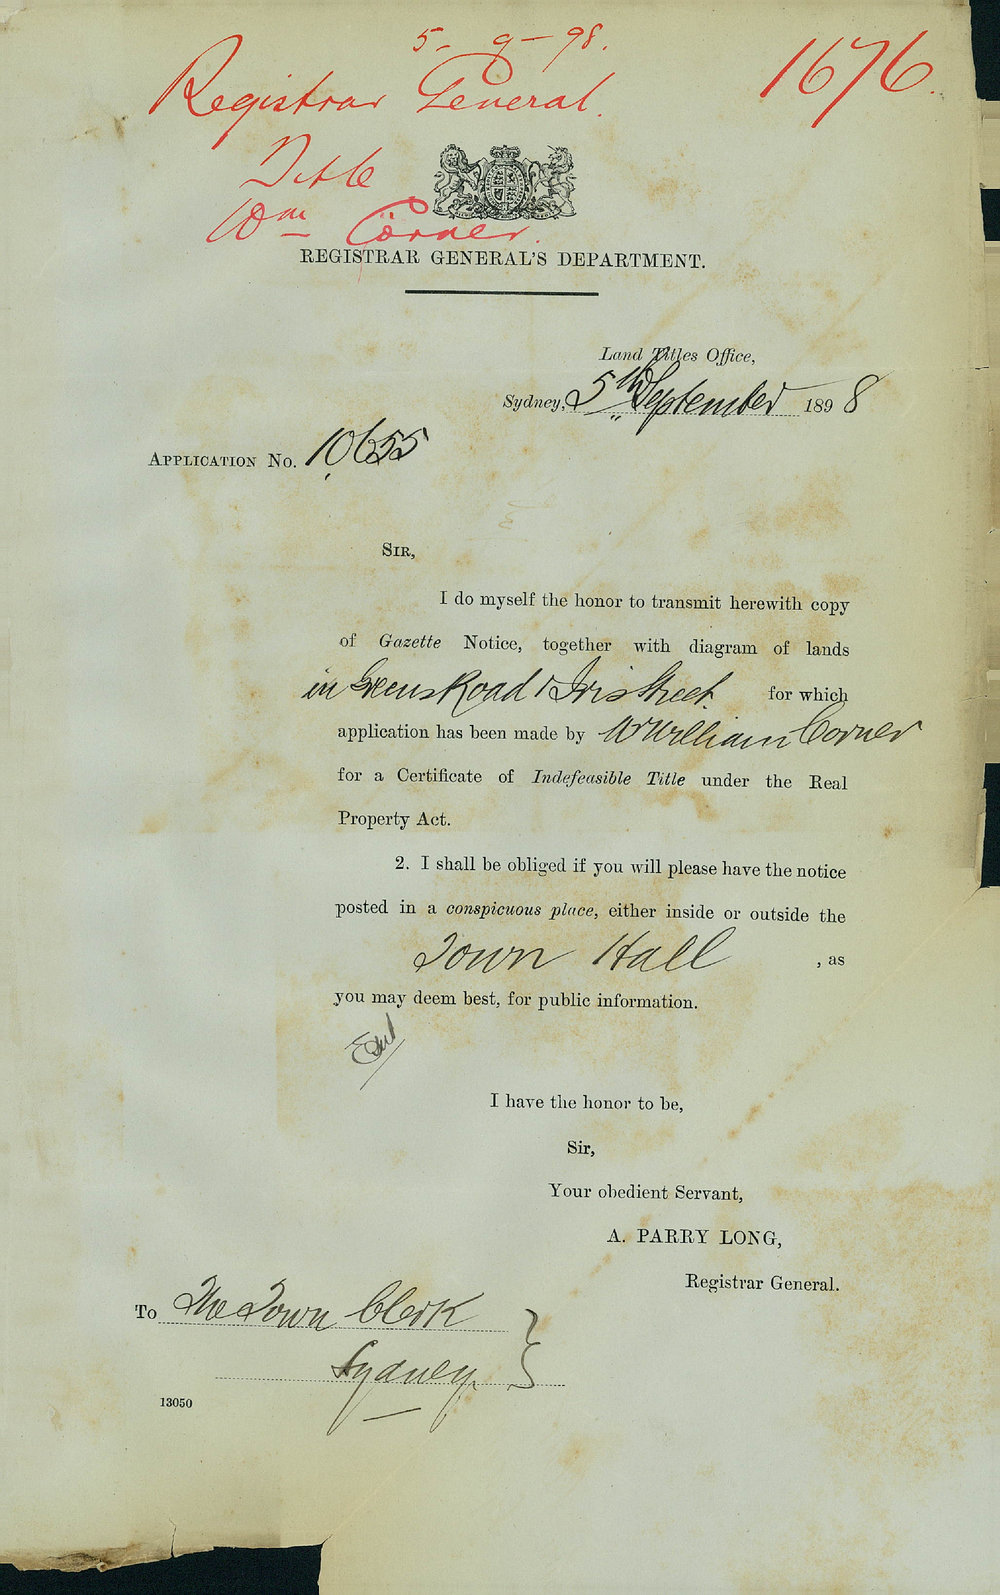 5 - 9 - 98.
1676.
Registrar General.
Title
Wm Corner.
REGISTRAR GENERAL'S DEPARTMENT.
Land Titles Office,
Sydney, 5th September 1898
APPLICATION No. 10655
SIR,
I do myself the honor to transmit herewith copy
of Gazette Notice, together with diagram of lands
in Greens Road & Iris Street. for which
application has been made by Mr William Corner
for a Certificate of Indefeasible Title under the Real
Property Act.
2. I shall be obliged if you will please have the notice
posted in a conspicuous place, either inside or outside the
Town Hall , as
you may deem best, for public information.
I have the honor to be,
Sir,
Your obedient Servant,
A. PARRY LONG,
Registrar General.
To The Town Clerk
Sydney.
13050